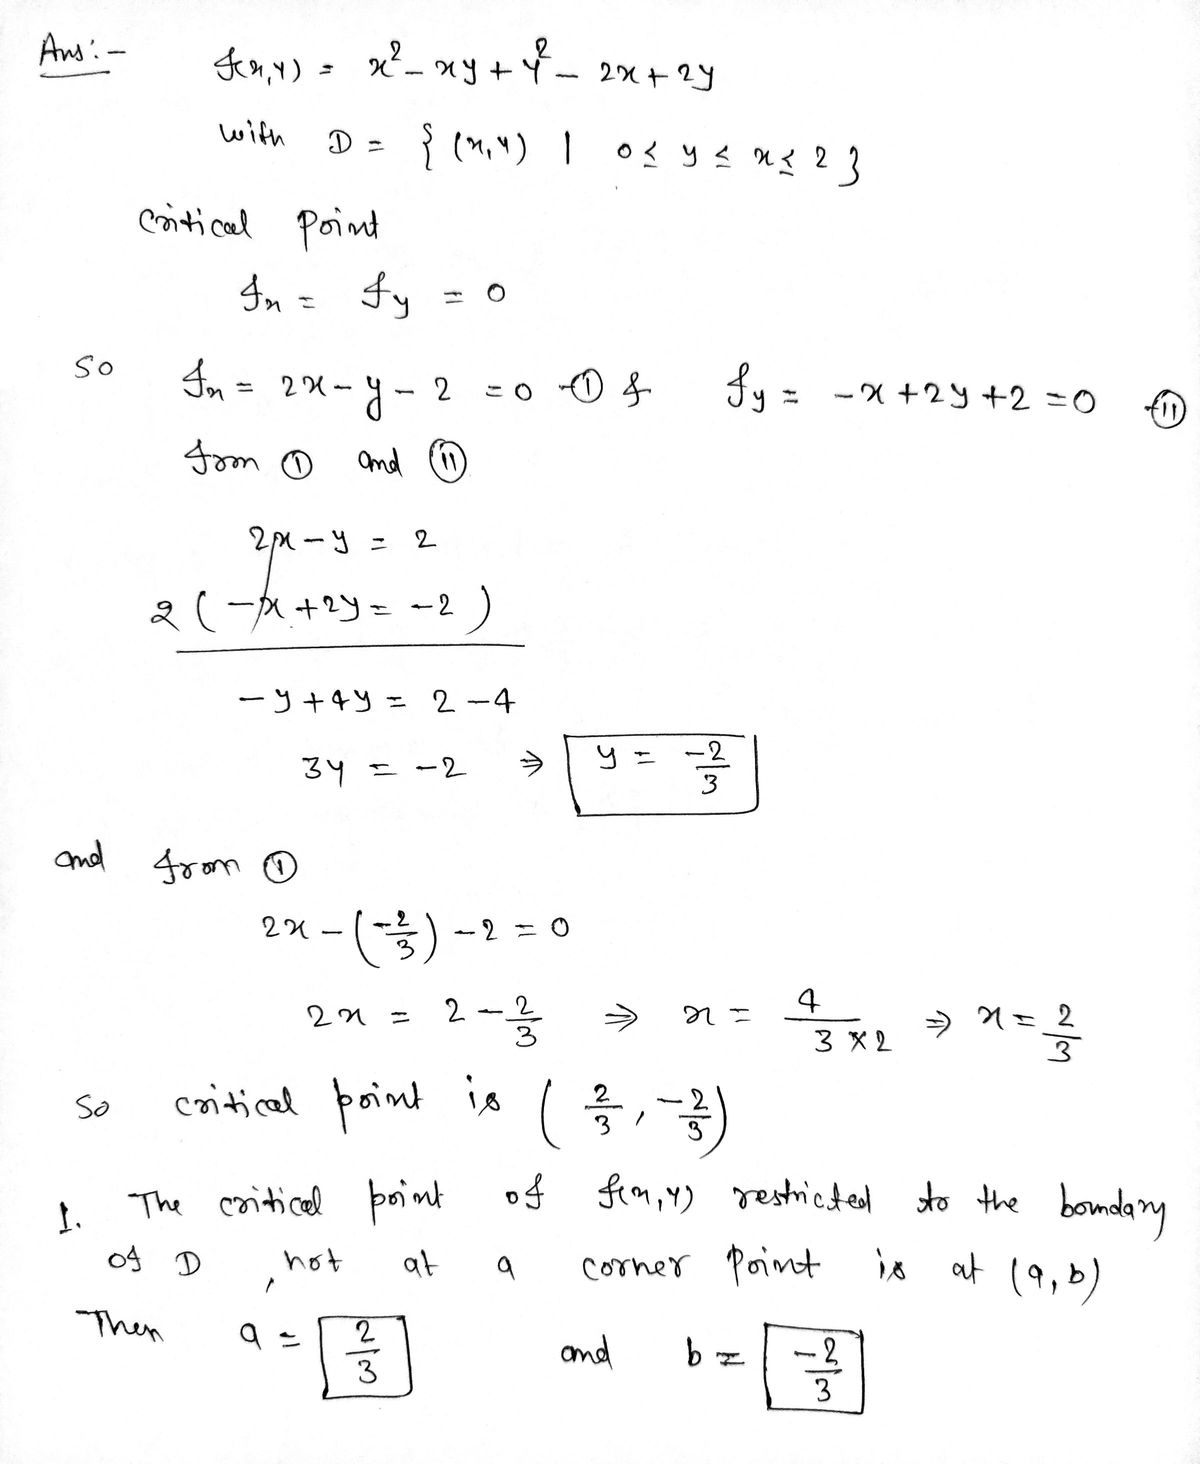 Ans:- f(x,y) = x² - xy + y² - 2x + 2y
with D = { (x,y) | 0 ≤ y ≤ x ≤ 2 }
Critical Point
fx = fy = 0
so fx = 2x - y - 2 = 0 -① & fy = -x + 2y + 2 = 0 -⑪
from ① and ⑪
2x - y = 2
2 ( -x + 2y = -2 )
-y + 4y = 2 - 4
3y = -2 ⇒ y = -2/3
and from ①
2x - (-2/3) - 2 = 0
2x = 2 - 2/3 ⇒ x = 4/(3×2) ⇒ x = 2/3
So critical point is ( 2/3 , -2/3 )
1. The critical point of f(x,y) restricted to the boundary
of D , not at a corner point is at (a, b)
Then a = 2/3 and b = -2/3